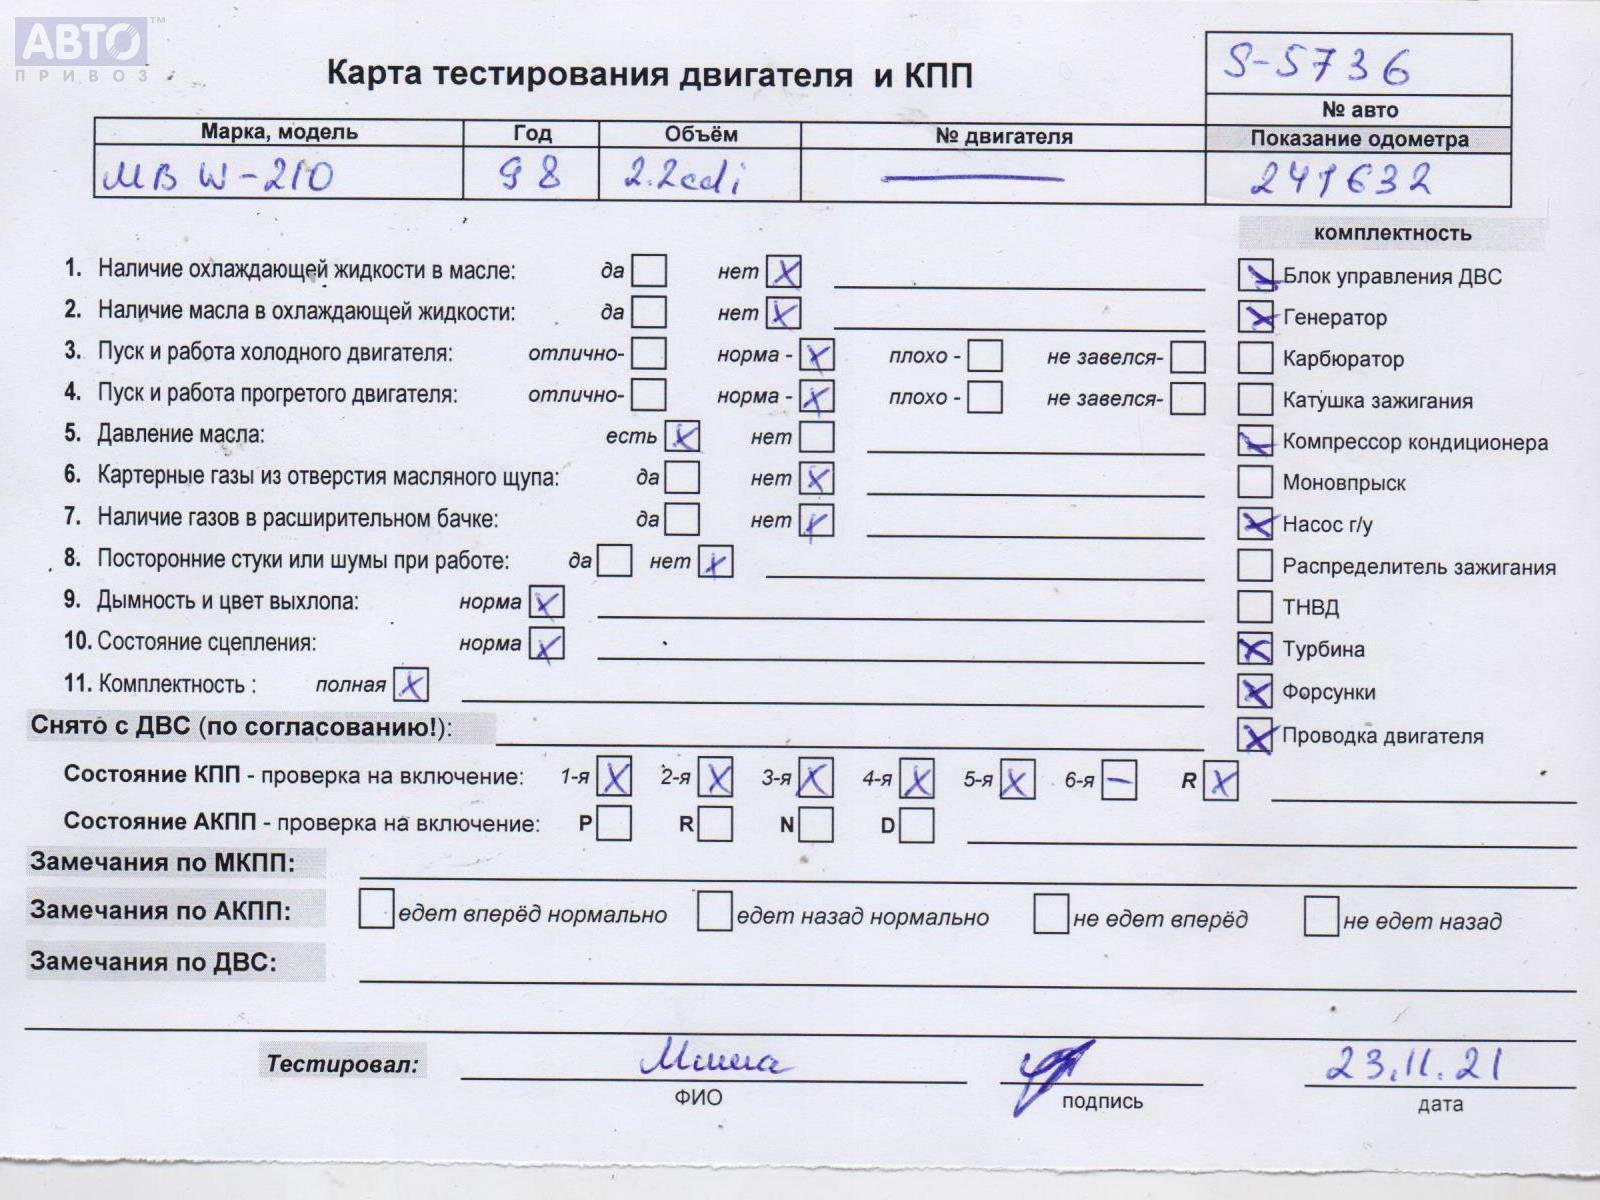 АВТО ™
ПРИВОЗ
Карта тестирования двигателя и КПП
S-5736
№ авто
Марка, модель Год Объём № двигателя Показание одометра
MB W-210 98 2.2cdi — 241632
комплектность
1. Наличие охлаждающей жидкости в масле: да нет X
Блок управления ДВС
2. Наличие масла в охлаждающей жидкости: да нет X
X Генератор
3. Пуск и работа холодного двигателя: отлично- норма - X плохо - не завелся-
Карбюратор
4. Пуск и работа прогретого двигателя: отлично- норма - X плохо - не завелся-
Катушка зажигания
5. Давление масла: есть X нет
Компрессор кондиционера
6. Картерные газы из отверстия масляного щупа: да нет X
Моновпрыск
7. Наличие газов в расширительном бачке: да нет X
X Насос г/у
8. Посторонние стуки или шумы при работе: да нет X
Распределитель зажигания
9. Дымность и цвет выхлопа: норма X
ТНВД
10. Состояние сцепления: норма X
X Турбина
11. Комплектность : полная X
X Форсунки
Снято с ДВС (по согласованию!):
X Проводка двигателя
Состояние КПП - проверка на включение: 1-я X 2-я X 3-я X 4-я X 5-я X 6-я — R X
Состояние АКПП - проверка на включение: P R N D
Замечания по МКПП:
Замечания по АКПП: едет вперёд нормально едет назад нормально не едет вперёд не едет назад
Замечания по ДВС:
Тестировал: Миша 23.11.21
ФИО подпись дата